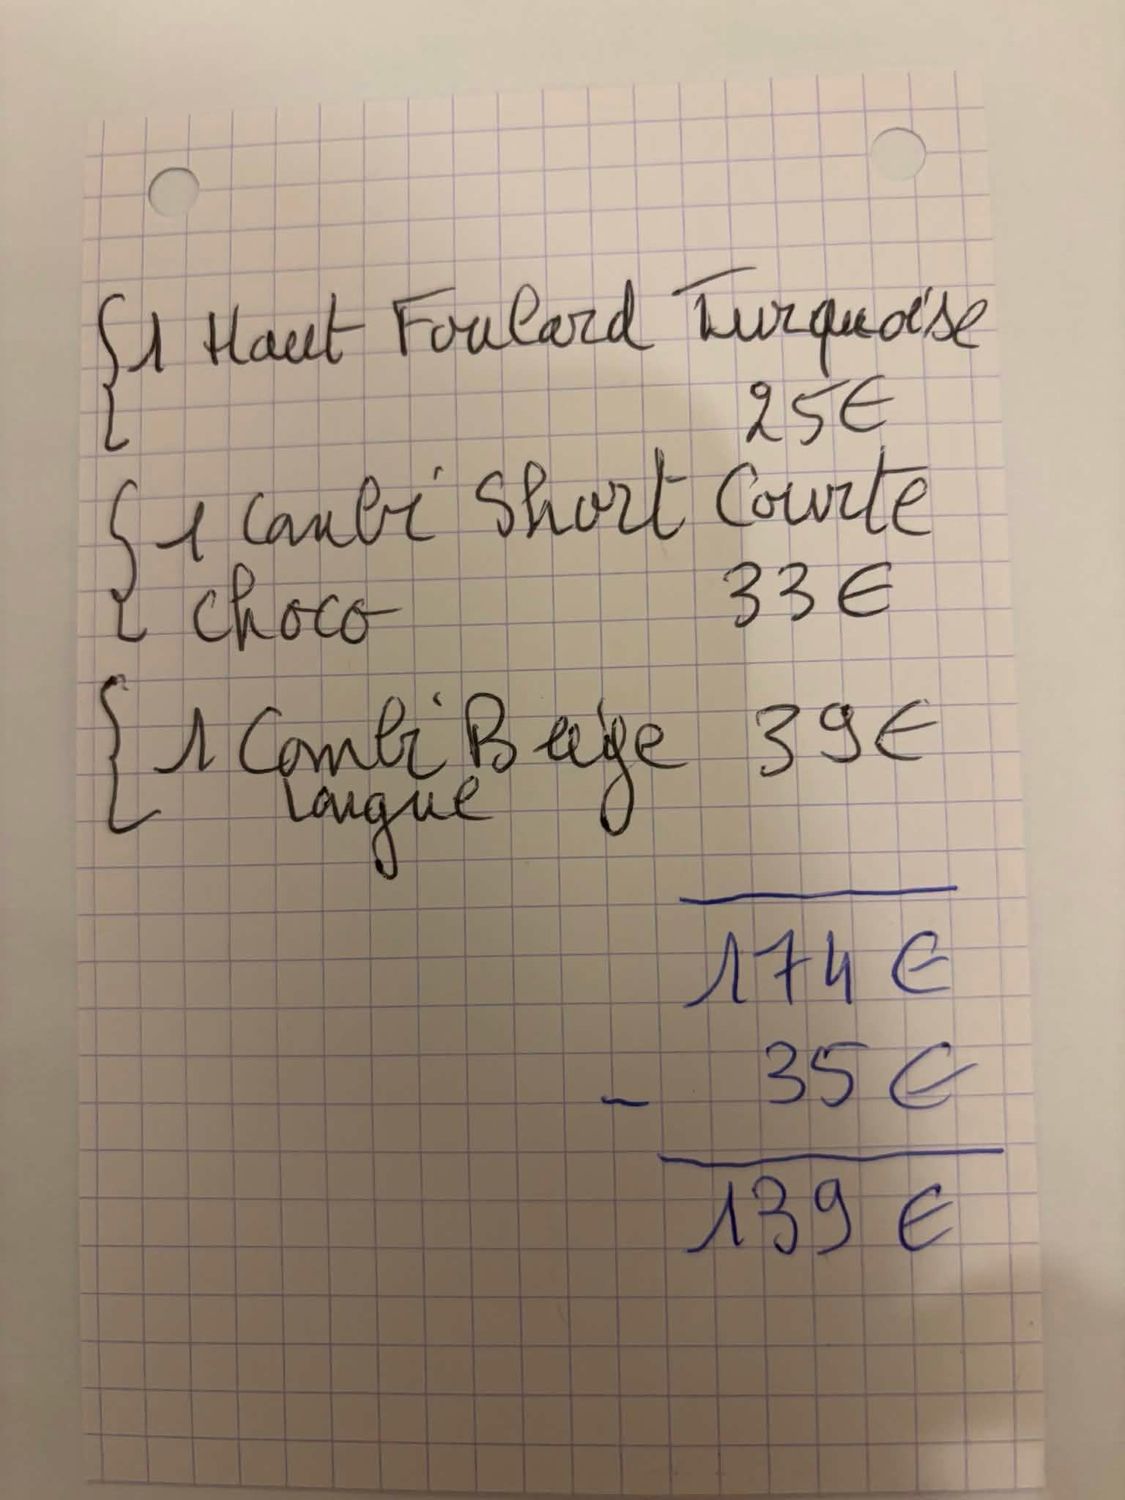 {1 Haut Foulard Turquoise
25€
{1 Combi Short Courte
choco 33€
{1 Combi Beige 39€
longue
174€
- 35€
139€